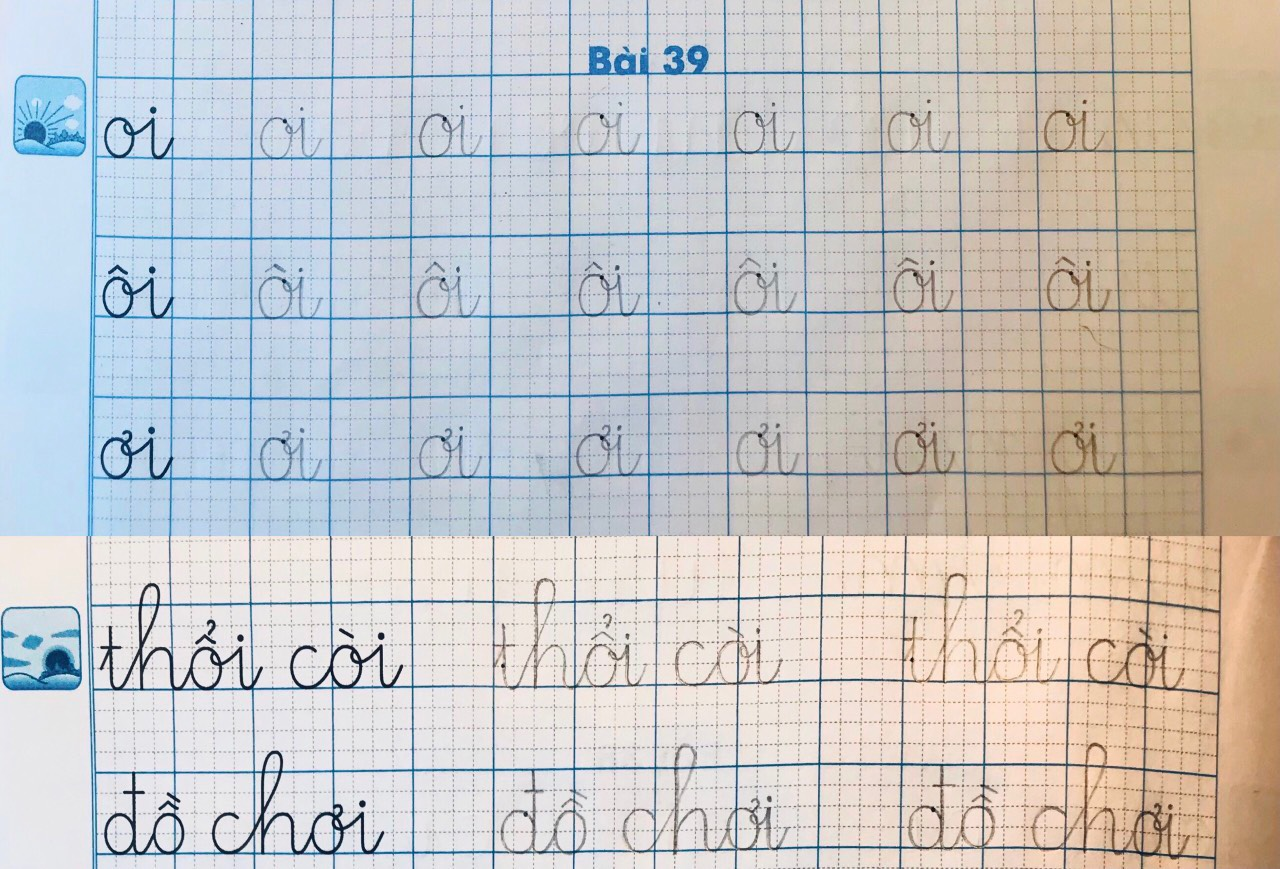 Bài 39
oi oi oi oi oi oi oi
ôi ôi ôi ôi ôi ôi ôi
ơi ơi ơi ơi ơi ơi ơi
thổi còi thổi còi thổi còi
đồ chơi đồ chơi đồ chơi